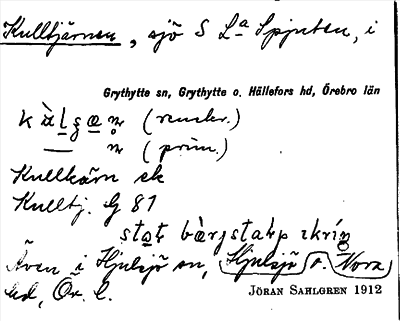 Kulltjärnen, sjö S La Spjuten, i
Grythytte sn, Grythytte o. Hällefors hd, Örebro län
(renskr.)
— (prim.)
Kullkärn ek
Kulltj. G 81
Även i Hjulsjö sn, Hjulsjö o. Nora
hd, Ör. l.
JÖRAN SAHLGREN 1912